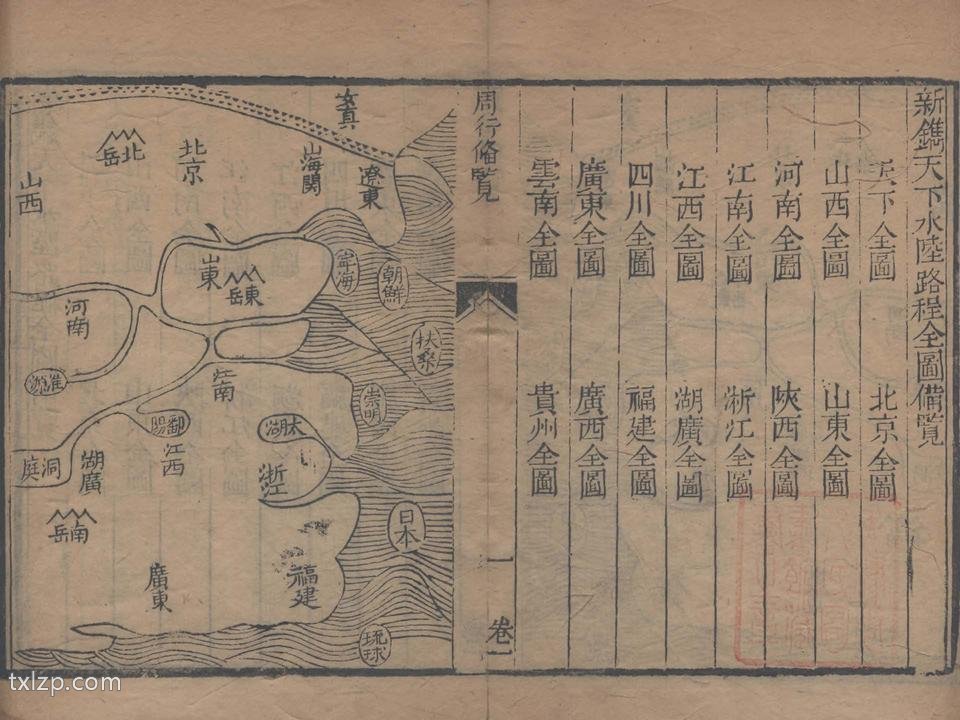 新鐫天下水陸路程全圖備覽
天下全圖
北京全圖
山西全圖
山東全圖
河南全圖
陝西全圖
江南全圖
浙江全圖
江西全圖
湖廣全圖
四川全圖
福建全圖
廣東全圖
廣西全圖
雲南全圖
貴州全圖
周行備覽
卷一
一
女真
遼東
山海關
北京
北岳
山西
朝鮮
寧海
山東
東岳
河南
扶桑
淮泗
江南
崇明
太湖
鄱陽
江西
浙江
湖廣
洞庭
南岳
日本
福建
廣東
琉球
txlzp.com